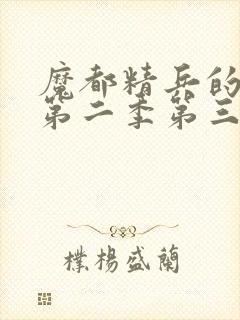 魔都精兵的
第二季第三
樸楊盛蘭